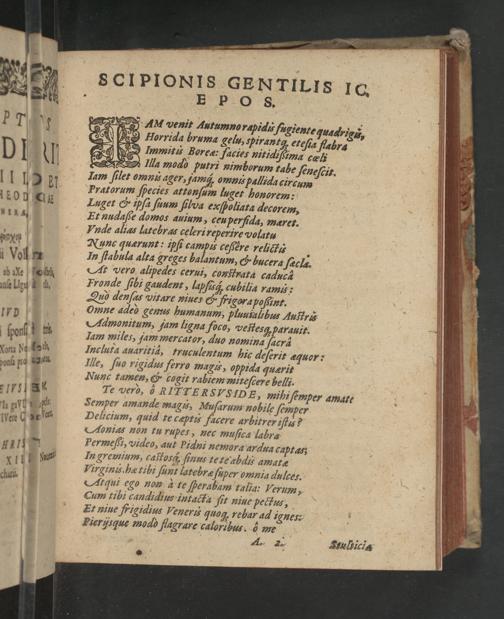 SCIPIONIS GENTILIS IC.
EPOS.
IAM venit Autumno rapidis fugiente quadrigis,
Horrida bruma gelu, spirantq; etesia flabra
Immitis Boreæ: facies nitidissima cœli
Illa modò putri nimborum tabe senescit.
Iam silet omnis ager, jamq; omnis pallida circum
Pratorum species attonsum luget honorem:
Luget & ipsa suum silva exspoliata decorem,
Et nudasse domos avium, ceu perfida, mæret.
Vnde alias latebras celeri reperire volatu
Nunc quærunt: ipsi campis cessêre relictis
In stabula alta greges balantum, & bucera sæcla.
At vero alipedes cerui, constrata caducâ
Fronde sibi gaudent, lapsisq; cubilia ramis:
Quò densas vitare niues & frigora possint.
Omne adeò genus humanum, pluvialibus Austris
Admonitum, jam ligna foco, vestesq; parauit.
Iam miles, jam mercator, duo nomina sacrâ
Incluta avaritiâ, truculentum hic deserit æquor:
Ille, suo rigidus ferro magis, oppida quærit
Nunc tamen, & cogit rabiem mitescere belli.
Te verò, ô RITTERSVSIDE, mihi semper amate
Semper amande magis, Musarum nobile semper
Delicium, quid te captis facere arbitrer istis?
Aonias non tu rupes, nec musica labra
Permessi, video, aut Pidni nemora ardua captas;
In gremium, castosq; sinus te te abdis amatæ
Virginis. hæ tibi sunt latebræ super omnia dulces.
Atqui ego non à te sperabam talia: Verum,
Cum tibi candidius intactâ sit niue pectus,
Et niue frigidius Veneris quoq; rebar ad ignes:
Pierijsque modò flagrare caloribus. ô me
A. 2.
Stultitiæ